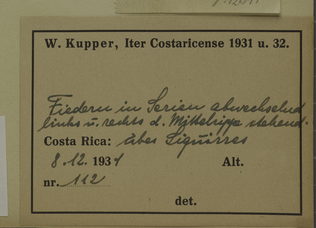 W. Kupper, Iter Costaricense 1931 u. 32.
Fiedern in Serien abwechselnd
links u. rechts d. Mittelrippe stehend.
Costa Rica: über Siquirres
8. 12. 1931 Alt.
nr. 112
det.